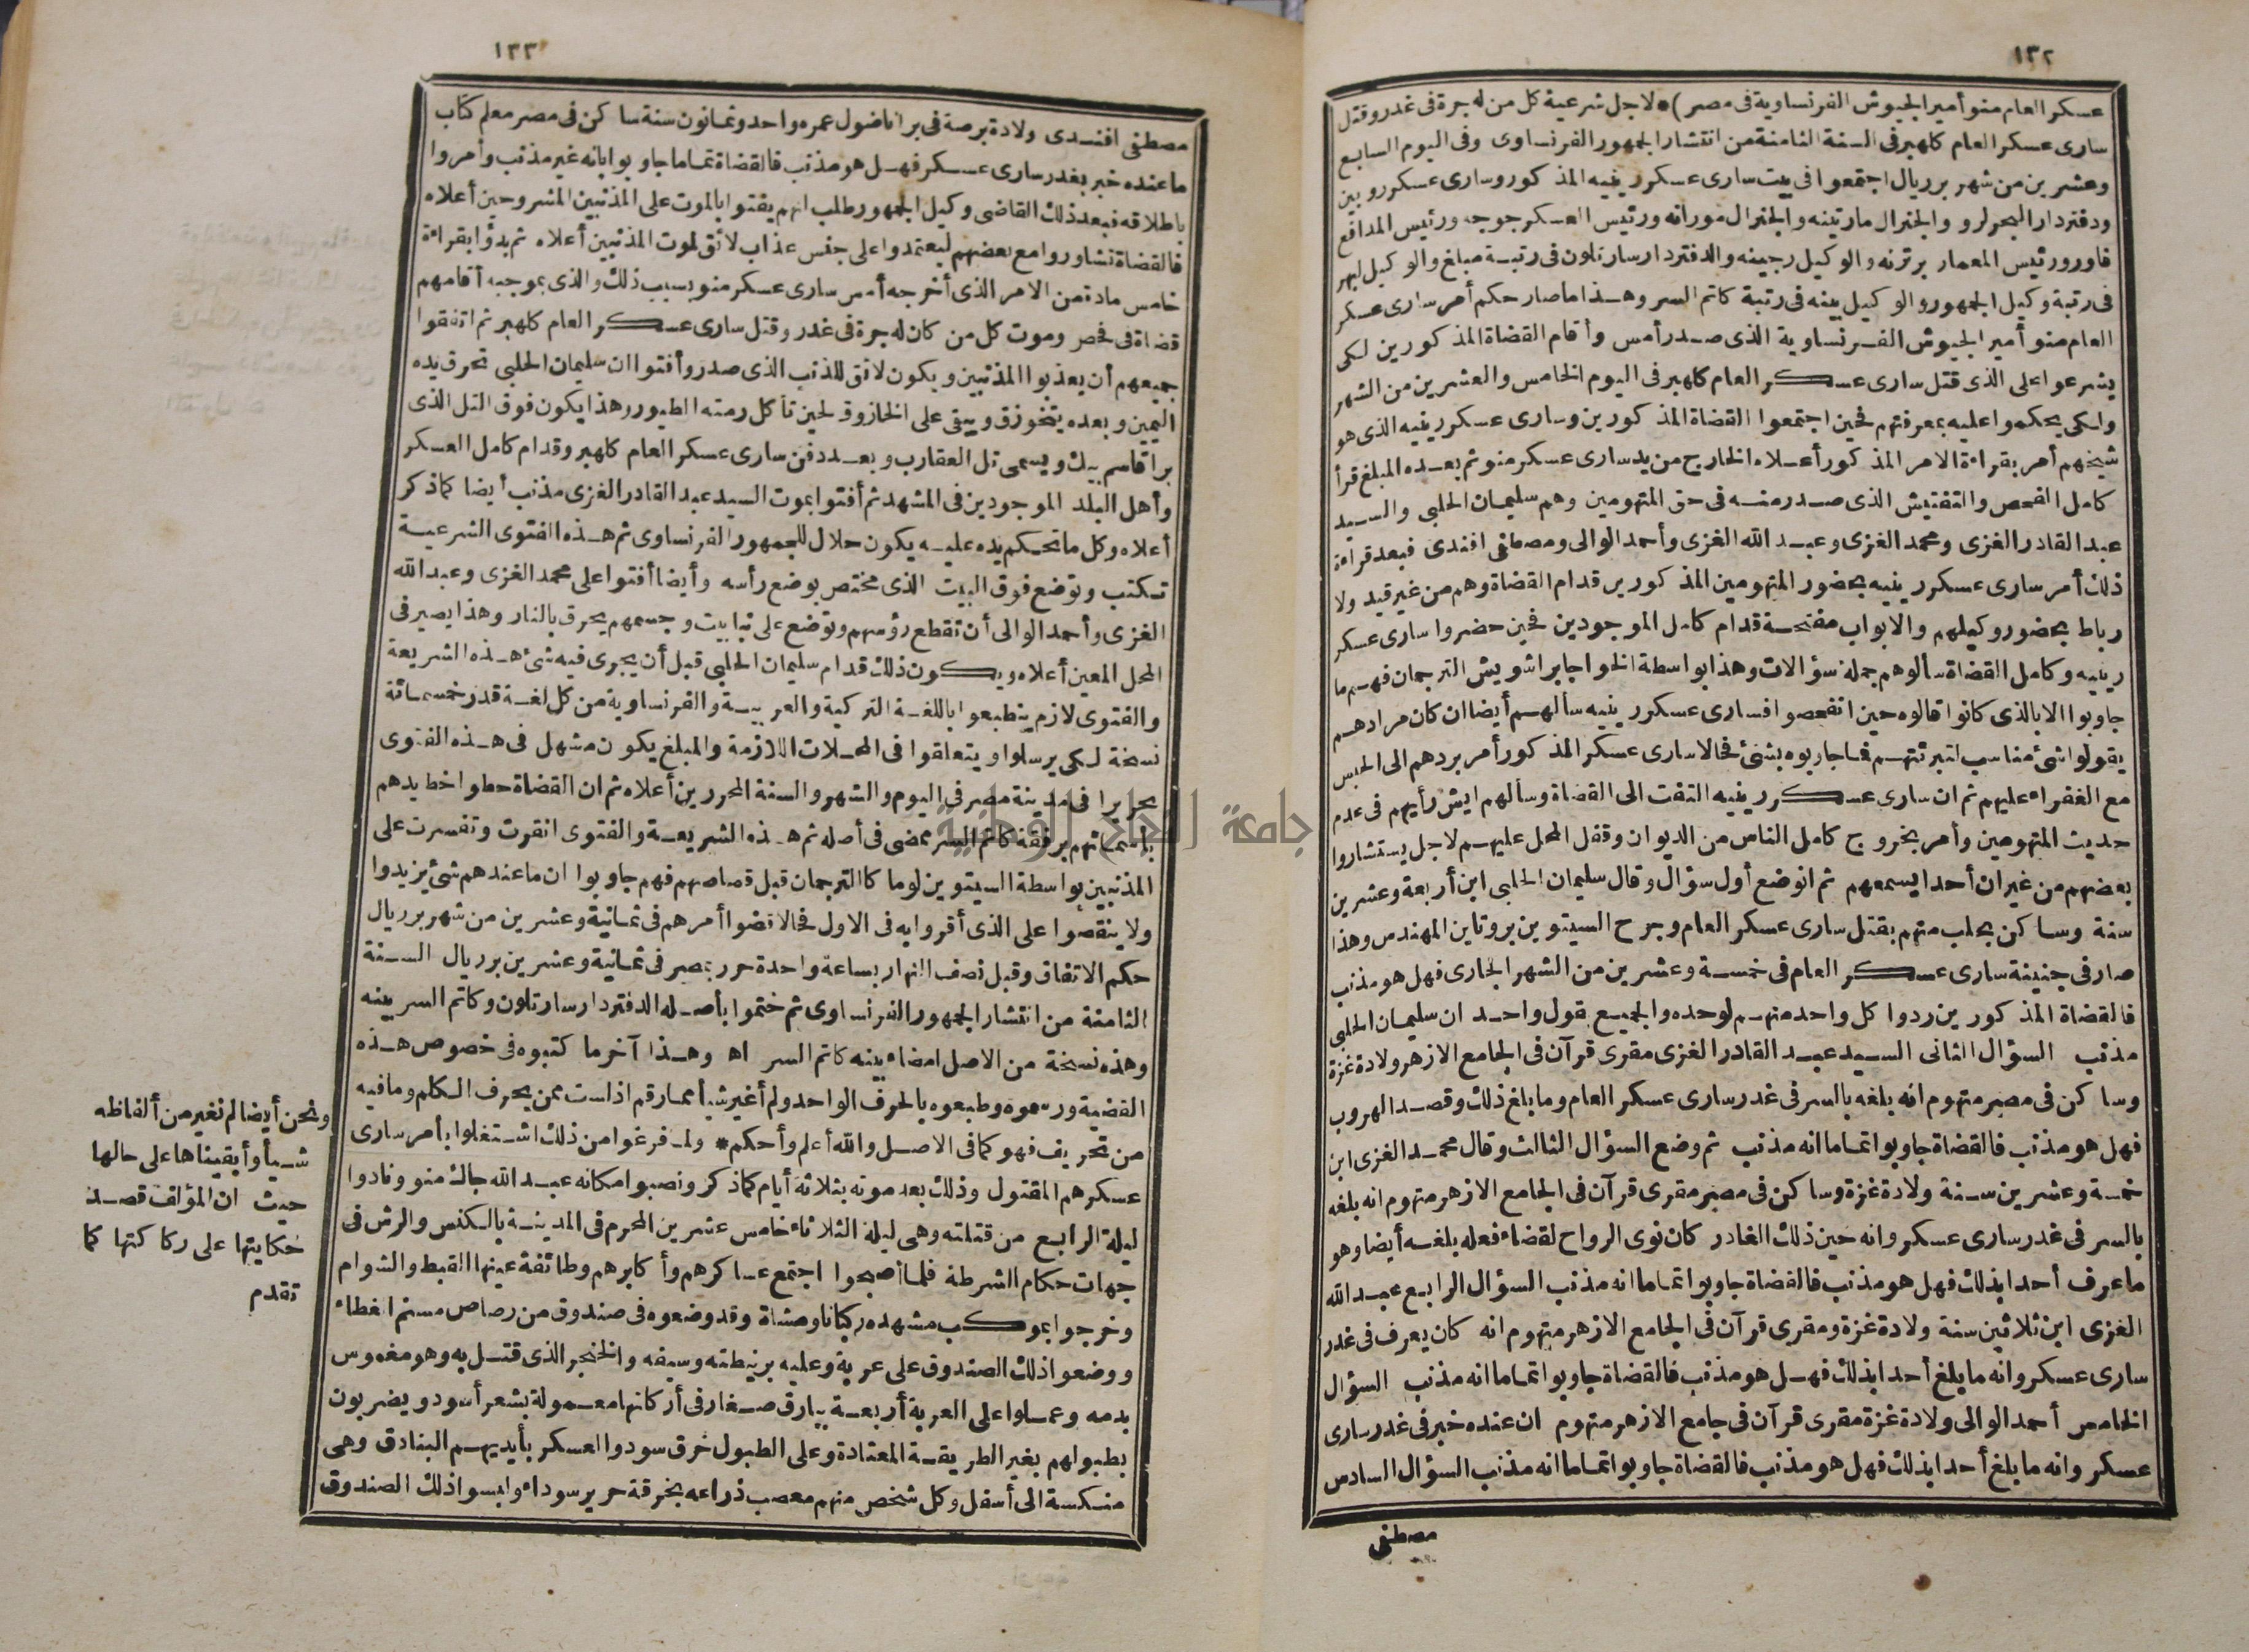 ١٣٢
عسكر العام منو أمير الجيوش الفرنساوية فى مصر)* لاجل شرعية كل من له جرة فى غدر وقتل
سارى عسكر العام كلهبر فى السنة الثامنة من انتشار الجمهور الفرنساوى وفى اليوم السابع
وعشرين من شهر برريال اجتمعوا فى بيت سارى عسكر رينيه المذكور وسارى عسكر روبين
ودفتردار البحر لرو والجنرال مارتينه والجنرال مورانه ورئيس العسكر جوجه ورئيس المدافع
فاور ورئيس المعمار برترنه والوكيل رجينه والدفتردار سارتلون فى رتبة مبلغ والوكيل لبهر
فى رتبة وكيل الجمهور والوكيل بينه فى رتبة كاتم السر وهذا ما صار حكم أمر سارى عسكر
العام منو أمير الجيوش الفرنساوية الذى صدر أمس وأقام القضاة المذكورين لكى
يشرعوا على الذى قتل سارى عسكر العام كلهبر فى اليوم الخامس والعشرين من الشهر
ولكى يحكموا عليه بمعرفتهم فحين اجتمعوا القضاة المذكورين وسارى عسكر رينيه الذى هو
شيخهم أمر بقراءة الامر المذكور أعلاه الخارج من يد سارى عسكر منو ثم بعده المبلغ قرأ
كامل الفحص والتفتيش الذى صدر منه فى حق المتهومين وهم سليمان الحلبى والسيد
عبد القادر الغزى ومحمد الغزى وعبد الله الغزى وأحمد الوالى ومصطفى افندى فبعد قراءة
ذلك أمر سارى عسكر رينيه بحضور المتهومين المذكورين قدام القضاة وهم من غير قيد ولا
رباط بحضور وكيلهم والابواب مفتحة قدام كامل الموجودين فحين حضروا سارى عسكر
رينيه وكامل القضاة سألوهم جملة سؤالات وهذا بواسطة الخواجا براشويش الترجمان فهم ما
جاوبوا الا بالذى كانوا قالوه حين انفحصوا فسارى عسكر رينيه سألهم أيضا ان كان مرادهم
يقولوا شئ مناسب لتبرئتهم فما جاوبوه بشئ فحالا سارى عسكر المذكور أمر بردهم الى الحبس
مع الغفراء عليهم ثم ان سارى عسكر رينيه التفت الى القضاة وسألهم ايش رأيهم فى عدم
حديث المتهومين وأمر بخروج كامل الناس من الديوان وقفل المحل عليهم لاجل يستشاروا
بعضهم من غير ان أحدا يسمعهم ثم انوضع أول سؤال وقال سليمان الحلبى ابن أربعة وعشرين
سنة وساكن بحلب متهم بقتل سارى عسكر العام وجرح السيتوين بروتاين المهندس وهذا
صار فى جنينة سارى عسكر العام فى خمسة وعشرين من الشهر الجارى فهل هو مذنب
فالقضاة المذكورين ردوا كل واحد منهم لوحده والجميع بقول واحد ان سليمان الحلبى
مذنب السؤال الثانى السيد عبد القادر الغزى مقرى قرآن فى الجامع الازهر ولادة غزة
وساكن فى مصر متهوم انه بلغه بالسر فى غدر سارى عسكر العام وما بلغ ذلك وقصد الهروب
فهل هو مذنب فالقضاة جاوبوا تماما انه مذنب ثم وضع السؤال الثالث وقال محمد الغزى ابن
خمسة وعشرين سنة ولادة غزة وساكن فى مصر مقرى قرآن فى الجامع الازهر متهوم انه بلغه
بالسر فى غدر سارى عسكر وانه حين ذلك الغادر كان نوى الرواح لقضاء فعله بلغه أيضا وهو
ما عرف أحدا بذلك فهل هو مذنب فالقضاة جاوبوا تماما انه مذنب السؤال الرابع عبد الله
الغزى ابن ثلاثين سنة ولادة غزة ومقرى قرآن فى الجامع الازهر متهوم انه كان يعرف فى غدر
سارى عسكر وانه ما بلغ أحدا بذلك فهل هو مذنب فالقضاة جاوبوا تماما انه مذنب السؤال
الخامس أحمد الوالى ولادة غزة مقرى قرآن فى جامع الازهر متهوم ان عنده خبر فى غدر سارى
عسكر وانه ما بلغ أحدا بذلك فهل هو مذنب فالقضاة جاوبوا تماما انه مذنب السؤال السادس
مصطفى
١٣٣
مصطفى افندى ولادة برصة فى بر اناضول عمره واحد وثمانون سنة ساكن فى مصر معلم كتاب
ما عنده خبر بغدر سارى عسكر فهل هو مذنب فالقضاة تماما جاوبوا بانه غير مذنب وأمروا
باطلاقه فبعد ذلك القاضى وكيل الجمهور طلب انهم يفتوا بالموت على المذنبين المشروحين أعلاه
فالقضاة تشاوروا مع بعضهم ليعتمدوا على جنس عذاب لائق لموت المذنبين أعلاه ثم بدؤا بقراءة
خامس مادة من الامر الذى أخرجه أمس سارى عسكر منو بسبب ذلك والذى بموجبه أقامهم
قضاة فى فحص وموت كل من كان له جرة فى غدر وقتل سارى عسكر العام كلهبر ثم اتفقوا
جميعهم أن يعذبوا المذنبين ويكون لائق للذنب الذى صدر وأفتوا ان سليمان الحلبى تحرق يده
اليمين وبعده يتخوزق ويبقى على الخازوق لحين تأكل رمته الطيور وهذا يكون فوق التل الذى
برا قاسم بيك ويسمى تل العقارب وبعد دفن سارى عسكر العام كلهبر وقدام كامل العسكر
وأهل البلد الموجودين فى المشهد ثم أفتوا بموت السيد عبد القادر الغزى مذنب أيضا كما ذكر
أعلاه وكل ما تحكم يده عليه يكون حلال للجمهور الفرنساوى ثم هذه الفتوى الشرعية
تكتب وتوضع فوق البيت الذى مختص بوضع رأسه وأيضا أفتوا على محمد الغزى وعبد الله
الغزى وأحمد الوالى أن تقطع رؤسهم وتوضع على نبابيت وجسمهم يحرق بالنار وهذا يصير فى
المحل المعين أعلاه ويكون ذلك قدام سليمان الحلبى قبل أن يجرى فيه شئ هذه الشريعة
والفتوى لازم ينطبعوا باللغة التركية والعربية والفرنساوية من كل لغة قدر خمسمائة
نسخة لكى يرسلوا ويتعلقوا فى المحلات اللازمة والمبلغ يكون مشهل فى هذه الفتوى
تحريرا فى مدينة مصر فى اليوم والشهر والسنة المحررين أعلاه ثم ان القضاة حطوا خط يدهم
بأسمائهم برفقة كاتم السر ممضى فى أصله ثم هذه الشريعة والفتوى انقرت وتفسرت على
المذنبين بواسطة السيتوين لوماكا الترجمان قبل قصاصهم فهم جاوبوا ان ما عندهم شئ يزيدوا
ولا ينقصوا على الذى أقروا به فى الاول فحالا قضوا أمرهم فى ثمانية وعشرين من شهر برريال
حكم الاتفاق وقبل نصف النهار بساعة واحدة حرر بمصر فى ثمانية وعشرين برريال السنة
الثامنة من انتشار الجمهور الفرنساوى ثم ختموا بأصله الدفتردار سارتلون وكاتم السر بينه
وهذه نسخة من الاصل امضاء بينه كاتم السر اه وهذا آخر ما كتبوه فى خصوص هذه
القضية ورسموه وطبعوه بالحرف الواحد ولم أغير شيأ مما رقم اذ لست ممن يحرف الكلم وما فيه
من تحريف فهو كما فى الاصل والله أعلم وأحكم* ولما فرغوا من ذلك اشتغلوا بأمر سارى
عسكرهم المقتول وذلك بعد موته بثلاثة أيام كما ذكر ونصبوا مكانه عبد الله جاك منو ونادوا
ليلة الرابع من قتلته وهى ليلة الثلاثاء خامس عشرين المحرم فى المدينة بالكنس والرش فى
جهات حكام الشرطة فلما أصبحوا اجتمع عساكرهم وأكابرهم وطائفة عينها القبط والشوام
وخرجوا بموكب مشهده ركبانا ومشاة وقد وضعوه فى صندوق من رصاص مسنم الغطاء
ووضعوا ذلك الصندوق على عربة وعليه برنيطته وسيفه والخنجر الذى قتل به وهو مغموس
بدمه وعملوا على العربة أربعة بيارق صغار فى أركانها معمولة بشعر أسود ويضربون
بطبولهم بغير الطريقة المعتادة وعلى الطبول خرق سود والعسكر بأيديهم البنادق وهى
منكسة الى أسفل وكل شخص منهم معصب ذراعه بخرقة حرير سوداء ولبسوا ذلك الصندوق
ونحن أيضا لم نغير من ألفاظه
شيأ وأبقيناها على حالها
حيث ان المؤلف قصد
حكايتها على ركاكتها كما
تقدم
جامعة النجاح الوطنية